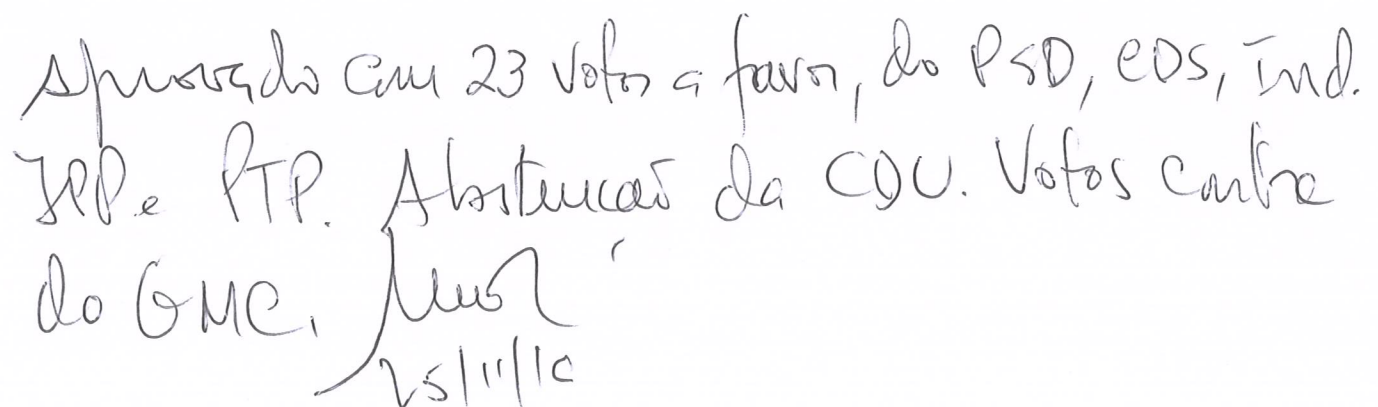 Aprovado com 23 votos a favor, do PSD, CDS, Ind.
JPP e PTP. Abstenção da CDU. Votos contra
do GMC.
25/11/10